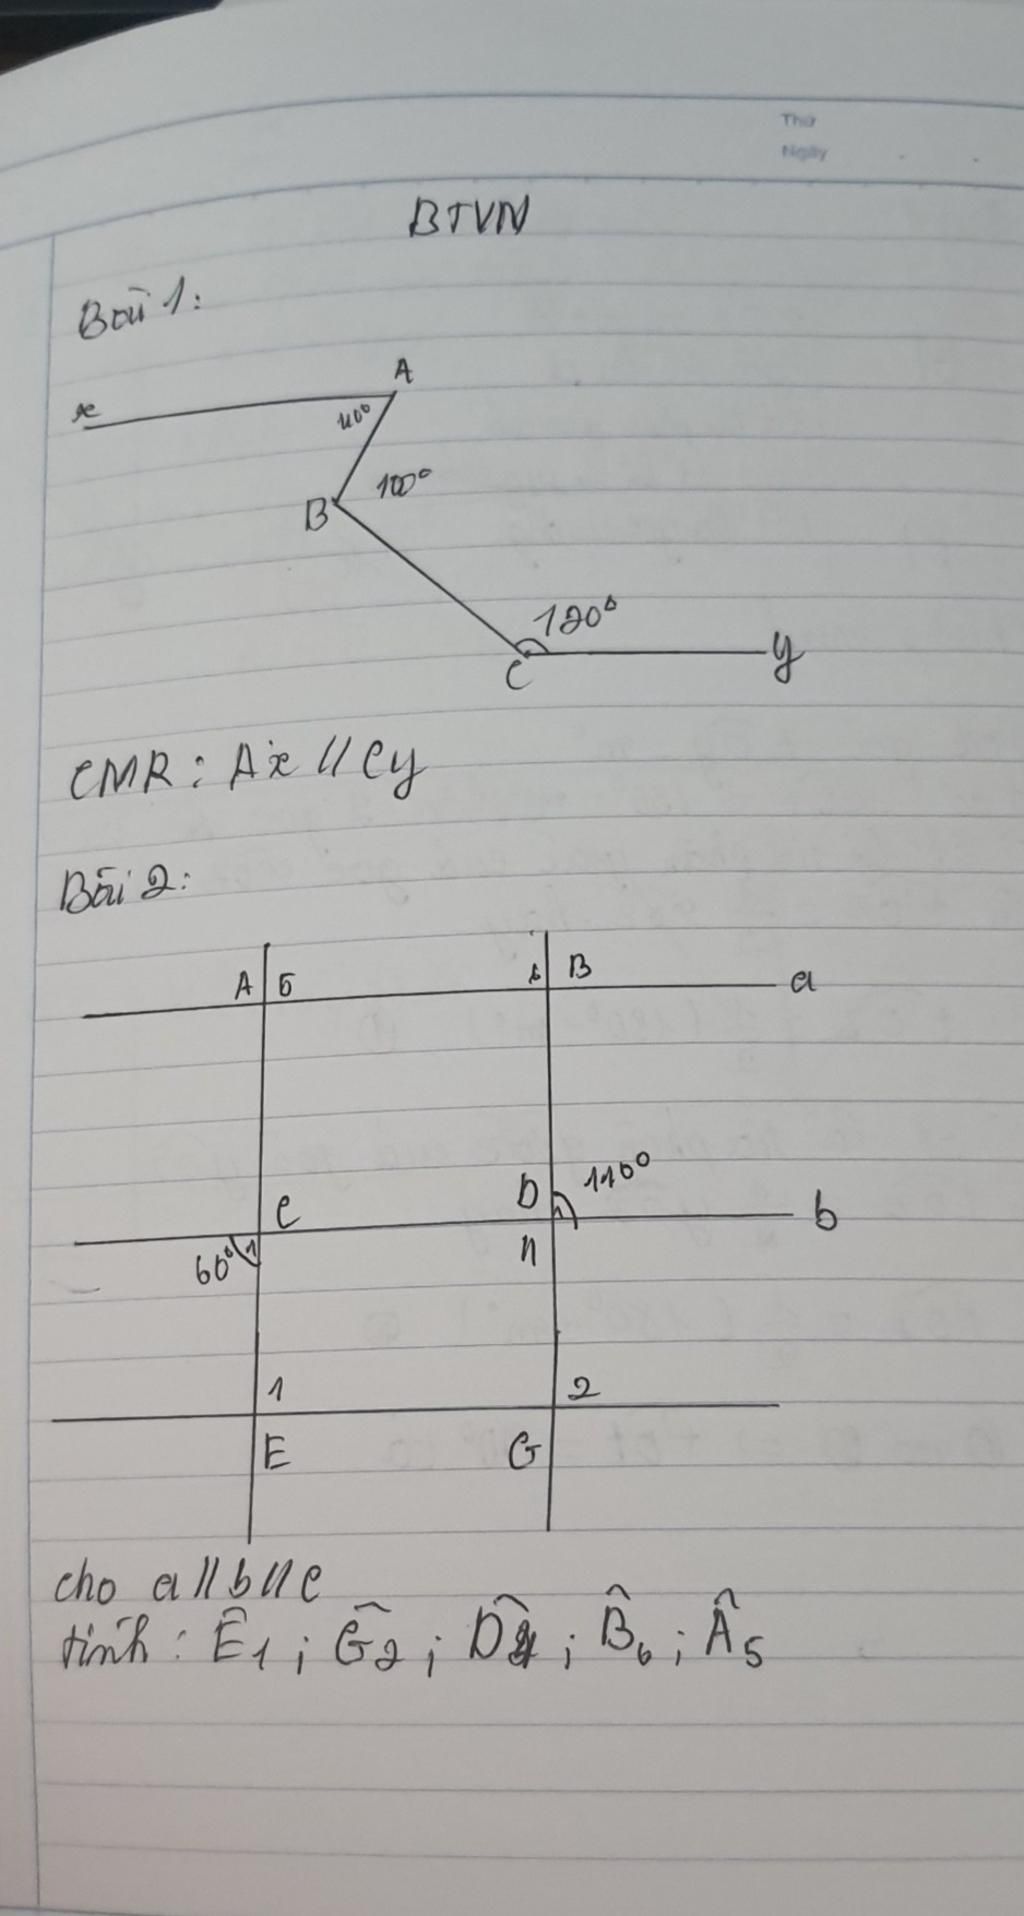 Thứ
Ngày
BTVN
Bài 1:
A
x
40°
100°
B
120°
C
y
CMR: Ax // Cy
Bài 2:
A 5
6 B
a
D 110°
1
C
b
60° 1
4
1
2
E
G
cho a // b // c
tính: Ê1; Ĝ2; D̂4; B̂6; Â5